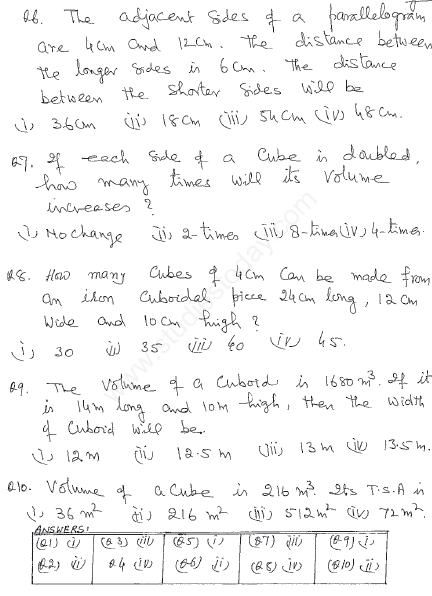 Q6. The adjacent sides of a parallelogram
are 4cm and 12cm. The distance between
the longer sides is 6cm. The distance
between the shorter sides will be
(i) 36cm (ii) 18cm (iii) 54cm (iv) 48cm.
Q7. If each side of a Cube is doubled,
how many times will its volume
increases?
(i) No change (ii) 2-times (iii) 8-times (iv) 4-times.
Q8. How many Cubes of 4cm can be made from
an iron Cuboidal piece 24cm long, 12cm
wide and 10cm high?
(i) 30 (ii) 35 (iii) 40 (iv) 45.
Q9. The Volume of a Cuboid is 1680m³. If it
is 14m long and 10m high, then the width
of Cuboid will be.
(i) 12m (ii) 12.5m (iii) 13m (iv) 13.5m.
Q10. Volume of a Cube is 216m³. Its T.S.A is
(i) 36m² (ii) 216m² (iii) 512m² (iv) 72m².
ANSWERS:
(Q1) (i) (Q3) (iii) (Q5) (i) (Q7) (iii) (Q9) (i)
(Q2) (ii) Q4 (iv) (Q6) (ii) (Q8) (iv) (Q10) (ii)
www.studiestoday.com